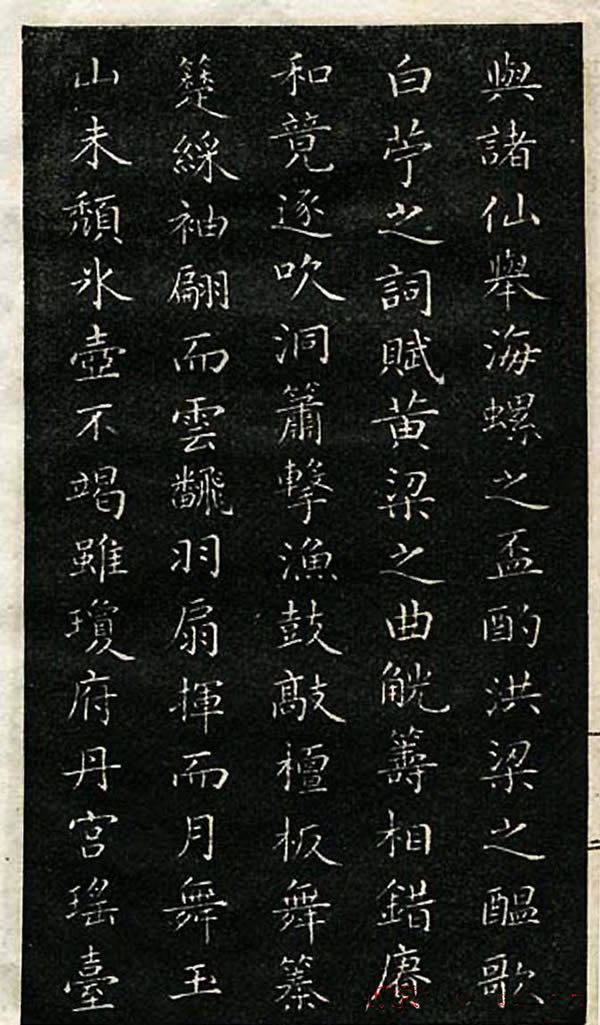 與諸仙舉海螺之盃酌洪梁之醖歌
白苧之詞賦黄粱之曲觥籌相錯賡
和竟逐吹洞簫擊漁鼓敲檀板舞
綵袖翩而雲飜羽扇揮而月舞玉
山未頽氷壺不竭雖瓊府丹宮瑤臺